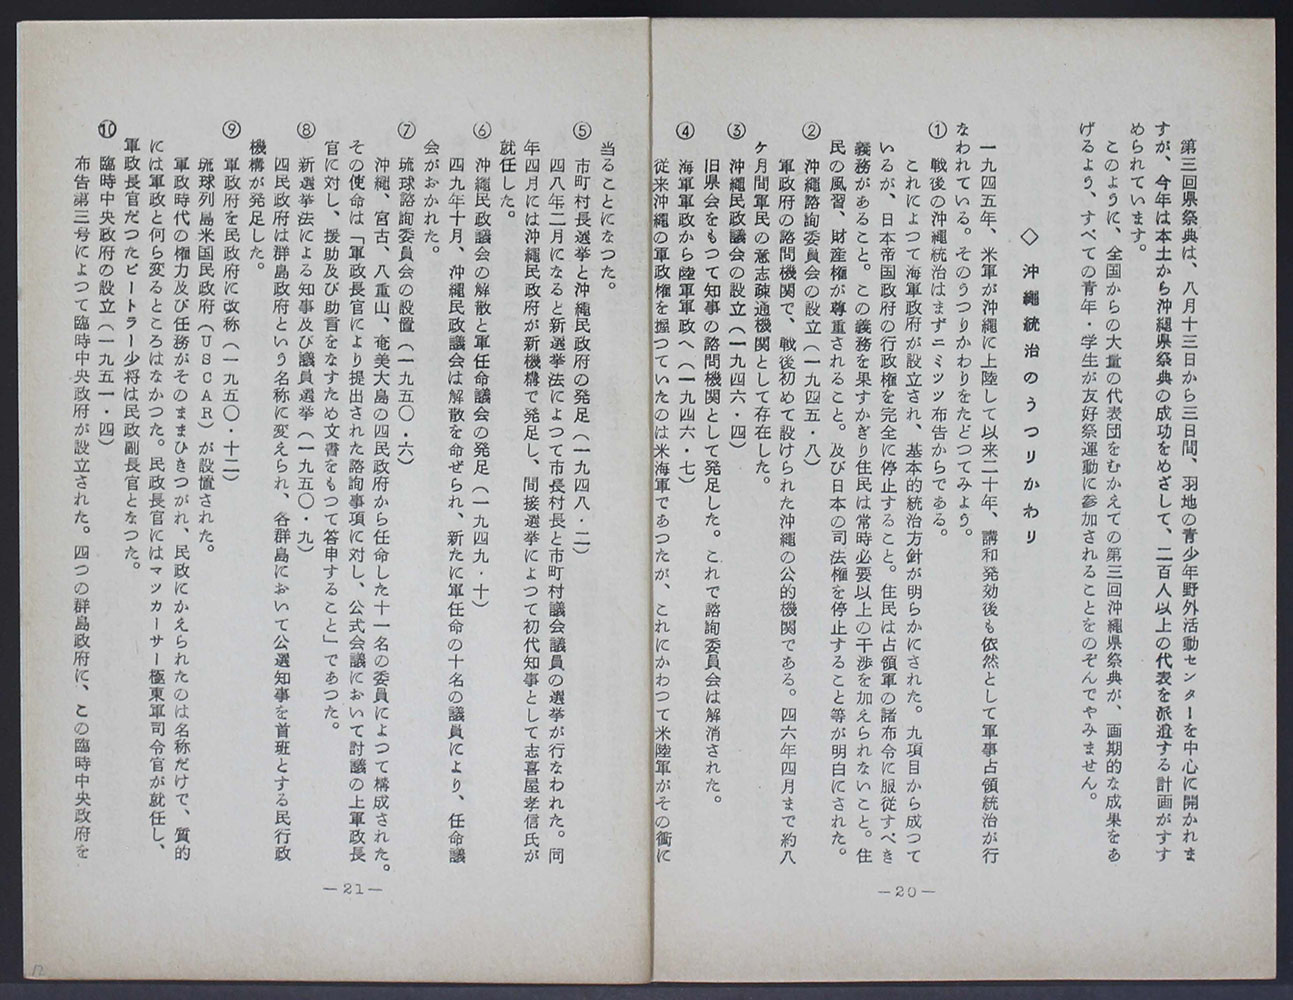 第三回県祭典は、八月十三日から三日間、羽地の青少年野外活動センターを中心に開かれま
すが、今年は本土から沖縄県祭典の成功をめざして、二百人以上の代表を派遣する計画がすす
められています。
このように、全国からの大量の代表団をむかえての第三回沖縄県祭典が、画期的な成果をあ
げるよう、すべての青年・学生が友好祭運動に参加されることをのぞんでやみません。
◇沖縄統治のうつりかわり
一九四五年、米軍が沖縄に上陸して以来二十年、講和発効後も依然として軍事占領統治が行
なわれている。そのうつりかわりをたどつてみよう。
① 戦後の沖縄統治はまずニミツツ布告からである。
これによつて海軍政府が設立され、基本的統治方針が明らかにされた。九項目から成つて
いるが、日本帝国政府の行政権を完全に停止すること。住民は占領軍の諸布令に服従すべき
義務があること。この義務を果すかぎり住民は常時必要以上の干渉を加えられないこと。住
民の風習、財産権が尊重されること。及び日本の司法権を停止すること等が明白にされた。
② 沖縄諮詢委員会の設立(一九四五・八)
軍政府の諮問機関で、戦後初めて設けられた沖縄の公的機関である。四六年四月まで約八
ケ月間軍民の意志疎通機関として存在した。
③ 沖縄民政議会の設立(一九四六・四)
旧県会をもつて知事の諮問機関として発足した。これで諮詢委員会は解消された。
④ 海軍軍政から陸軍軍政へ(一九四六・七)
従来沖縄の軍政権を握つていたのは米海軍であつたが、これにかわつて米陸軍がその衝に
—20—
当ることになつた。
⑤ 市町村長選挙と沖縄民政府の発足(一九四八・二)
四八年二月になると新選挙法によつて市長村長と市町村議会議員の選挙が行なわれた。同
年四月には沖縄民政府が新機構で発足し、間接選挙によつて初代知事として志喜屋孝信氏が
就任した。
⑥ 沖縄民政議会の解散と軍任命議会の発足(一九四九・十)
四九年十月、沖縄民政議会は解散を命ぜられ、新たに軍任命の十名の議員により、任命議
会がおかれた。
⑦ 琉球諮詢委員会の設置(一九五〇・六)
沖縄、宮古、八重山、奄美大島の四民政府から任命した十一名の委員によつて構成された。
その使命は「軍政長官により提出された諮詢事項に対し、公式会議において討議の上軍政長
官に対し、援助及び助言をなすため文書をもつて答申すること」であつた。
⑧ 新選挙法による知事及び議員選挙(一九五〇・九)
四民政府は群島政府という名称に変えられ、各群島において公選知事を首班とする民行政
機構が発足した。
⑨ 軍政府を民政府に改称(一九五〇・十二)
琉球列島米国民政府(USCAR)が設置された。
軍政時代の権力及び任務がそのままひきつがれ、民政にかえられたのは名称だけで、質的
には軍政と何ら変るところはなかつた。民政長官にはマツカーサー極東軍司令官が就任し、
軍政長官だつたビートラー少将は民政副長官となつた。
⑩ 臨時中央政府の設立(一九五一・四)
布告第三号によつて臨時中央政府が設立された。四つの群島政府に、この臨時中央政府を
—21—
12